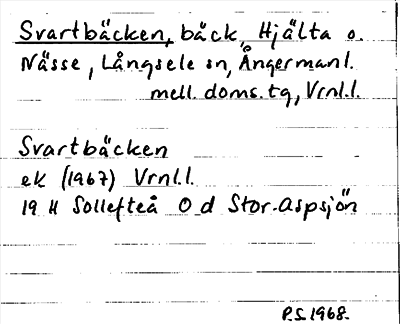 Svartbäcken, bäck, Hjälta o.
Nässe, Långsele sn, Ångermanl.
mell. doms. tg, Vrnl.l.
Svartbäcken
ek (1967) Vrnl.l.
19 H Sollefteå O d Stor-Aspsjön
P.S. 1968